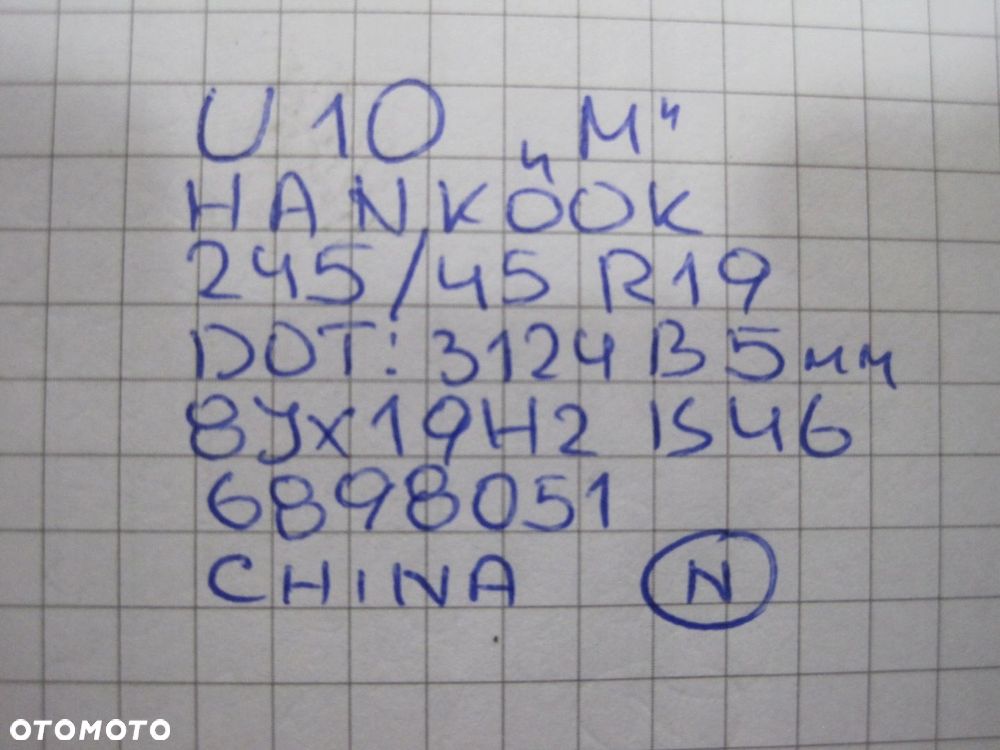 U10 „M"
HANKOOK
245/45 R19
DOT: 3124 B 5мм
8JX19H2 IS46
6898051
CHINA N
OTOMOTO